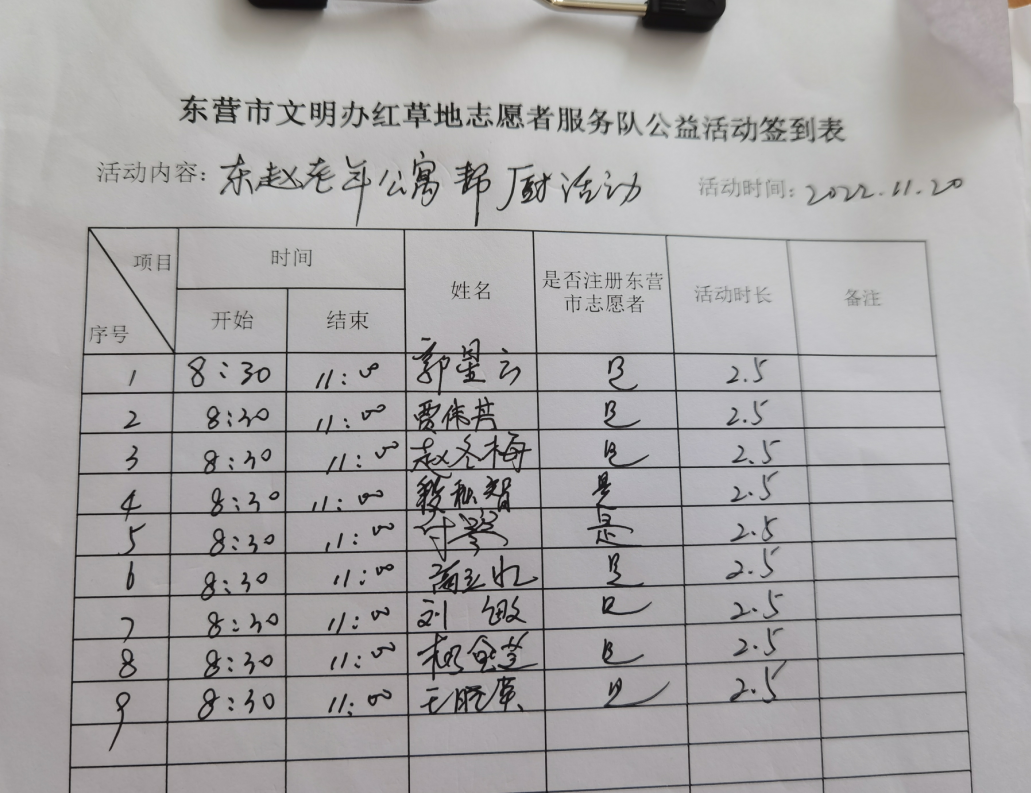 东营市文明办红草地志愿者服务队公益活动签到表
活动内容：东赵老年公寓帮厨活动 活动时间：2022.11.20
项目 序号 时间 姓名 是否注册东营市志愿者 活动时长 备注
开始 结束
1 8:30 11:00 郭星云 是 2.5
2 8:30 11:00 贾伟芹 是 2.5
3 8:30 11:00 赵冬梅 是 2.5
4 8:30 11:00 是 2.5
5 8:30 11:00 是 2.5
6 8:30 11:00 是 2.5
7 8:30 11:00 刘敏 是 2.5
8 8:30 11:00 是 2.5
9 8:30 11:00 王晓英 是 2.5